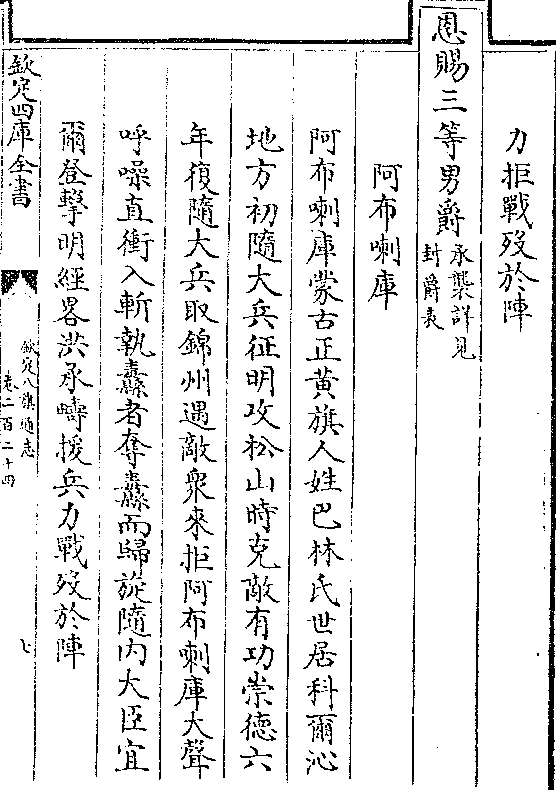 力拒戰歿於陣
恩賜三等男爵承襲詳見
封爵表
阿布喇庫
阿布喇庫蒙古正黃旗人姓巴林氏世居科爾沁
地方初隨大兵征明攻松山時克敵有功崇德六
年復隨大兵取錦州遇敵衆來拒阿布喇庫大聲
呼噪直衝入斬執纛者奪纛而歸旋隨内大臣宜
爾登擊明經畧洪承疇援兵力戰歿於陣
欽定四庫全書
欽定八旗通志
卷二百二十四
七